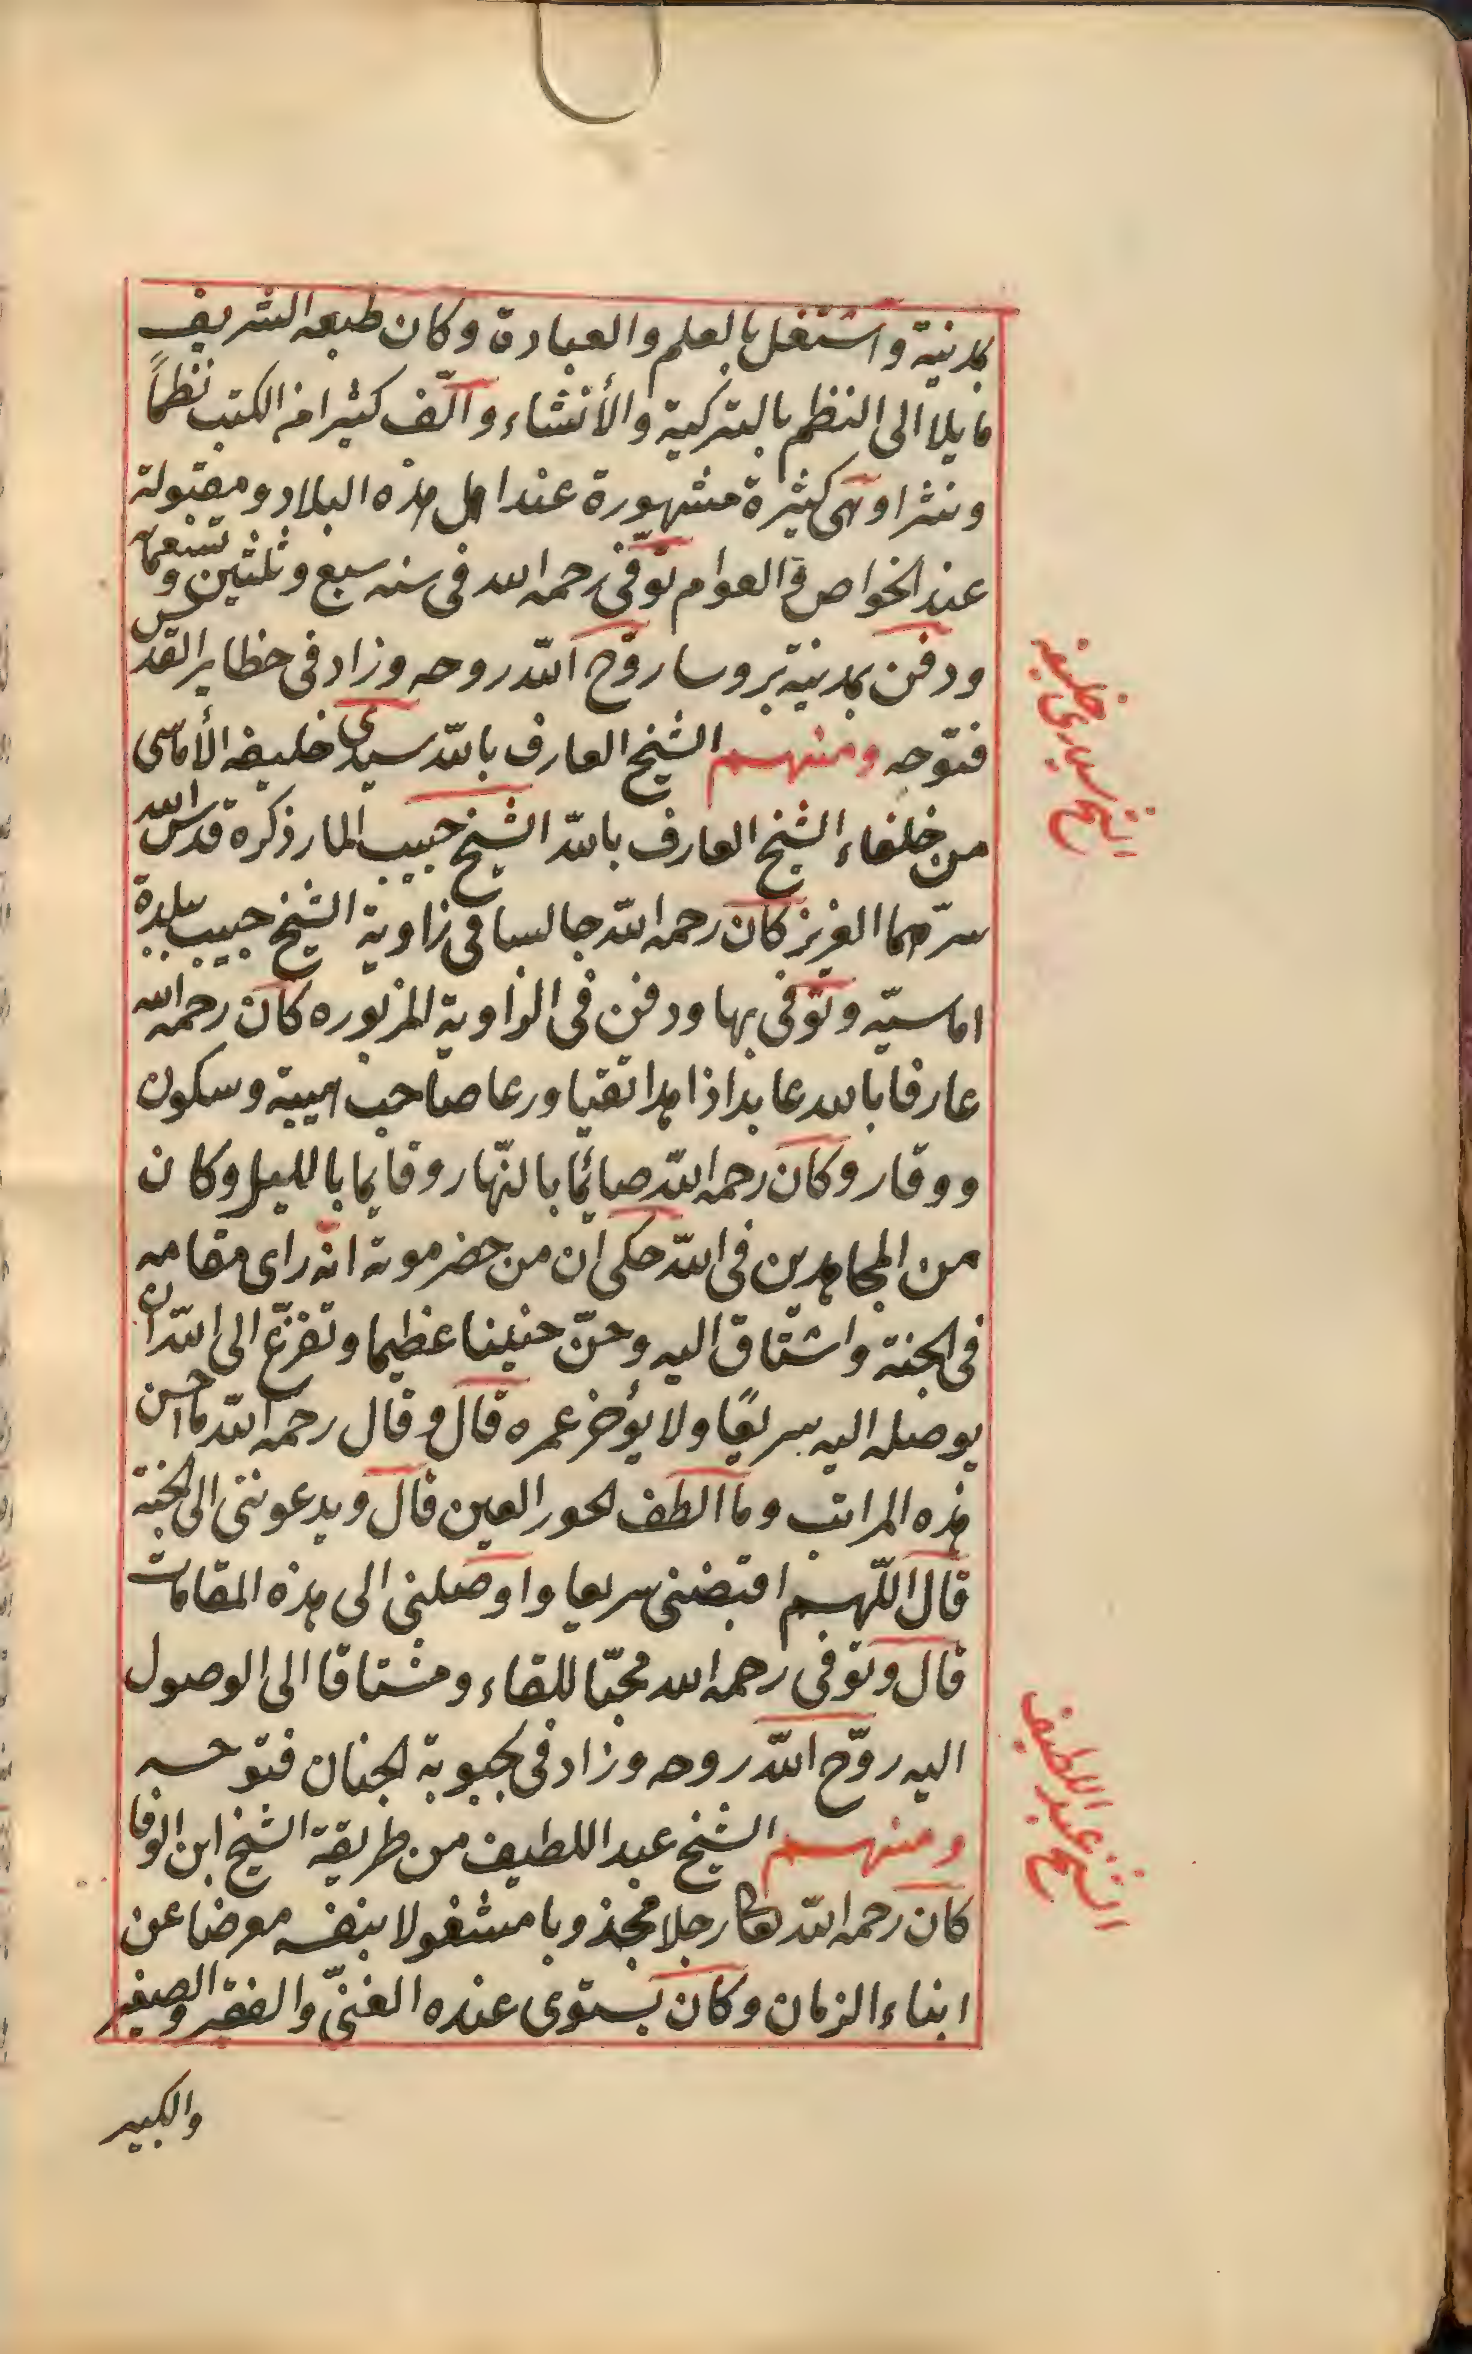 بمدينة واشتغل بالعلم والعبادة وكان طبعه الشريف
مايلا الى النظم بالتركية والأنشاء والّف كثيرا من الكتب نظماً
ونثرا وهى كثيرة مشهورة عند اهل هذه البلاد ومقبولة
عند الخواص والعوام توفى رحمه الله فى سنه سبع وثلثين وتسعمائه
ودفن بمدينة بروسا روّح الله روحه وزاد فى حظاير القدس
فتوحه ومنهم الشيخ العارف بالله سيدى خليفه الأماسى
من خلفاء الشيخ العارف بالله الشيخ حبيب المار ذكره قدس الله
سرّهما العزيز كان رحمه الله جالسا فى زاوية الشيخ حبيب ببلدة
اماسيّه وتوفى بها ودفن فى الزاوية المزبوره كان رحمه الله
عارفا بالله عابدا زاهدا تقيا ورعا صاحب هيبة وسكون
ووقار وكان رحمه الله صائما بالنّهار وقايما بالليل وكان
من المجاهدين فى الله حكى ان من حضر موته انه راى مقامه
فى الجنة واشتاق اليه وحنّ حنينا عظيما وتضرّع الى الله ان
يوصله اليه سريعًا ولا يؤخر عمره قال وقال رحمه الله ما احسن
هذه المراتب وما الطف الحور العين قال ويدعوننى الى الجنة
قال اللّهم اقبضنى سريعا واوصلنى الى هذه المقامات
قال وتوفى رحمه الله محبّا للقاء ومشتاقا الى الوصول
اليه روّح الله روحه وزاد فى بحبوبة الجنان فتوحه
ومنهم الشيخ عبد اللطيف من طريقة الشيخ ابن الوفا
كان رحمه الله رجلا مجذوبا مشغولا بنفسه معرضا عن
ابناء الزمان وكان يستوى عنده الغنىّ والفقير والصغير
والكبير
الشيخ سيدى خليفه
الشيخ عبد اللطيف